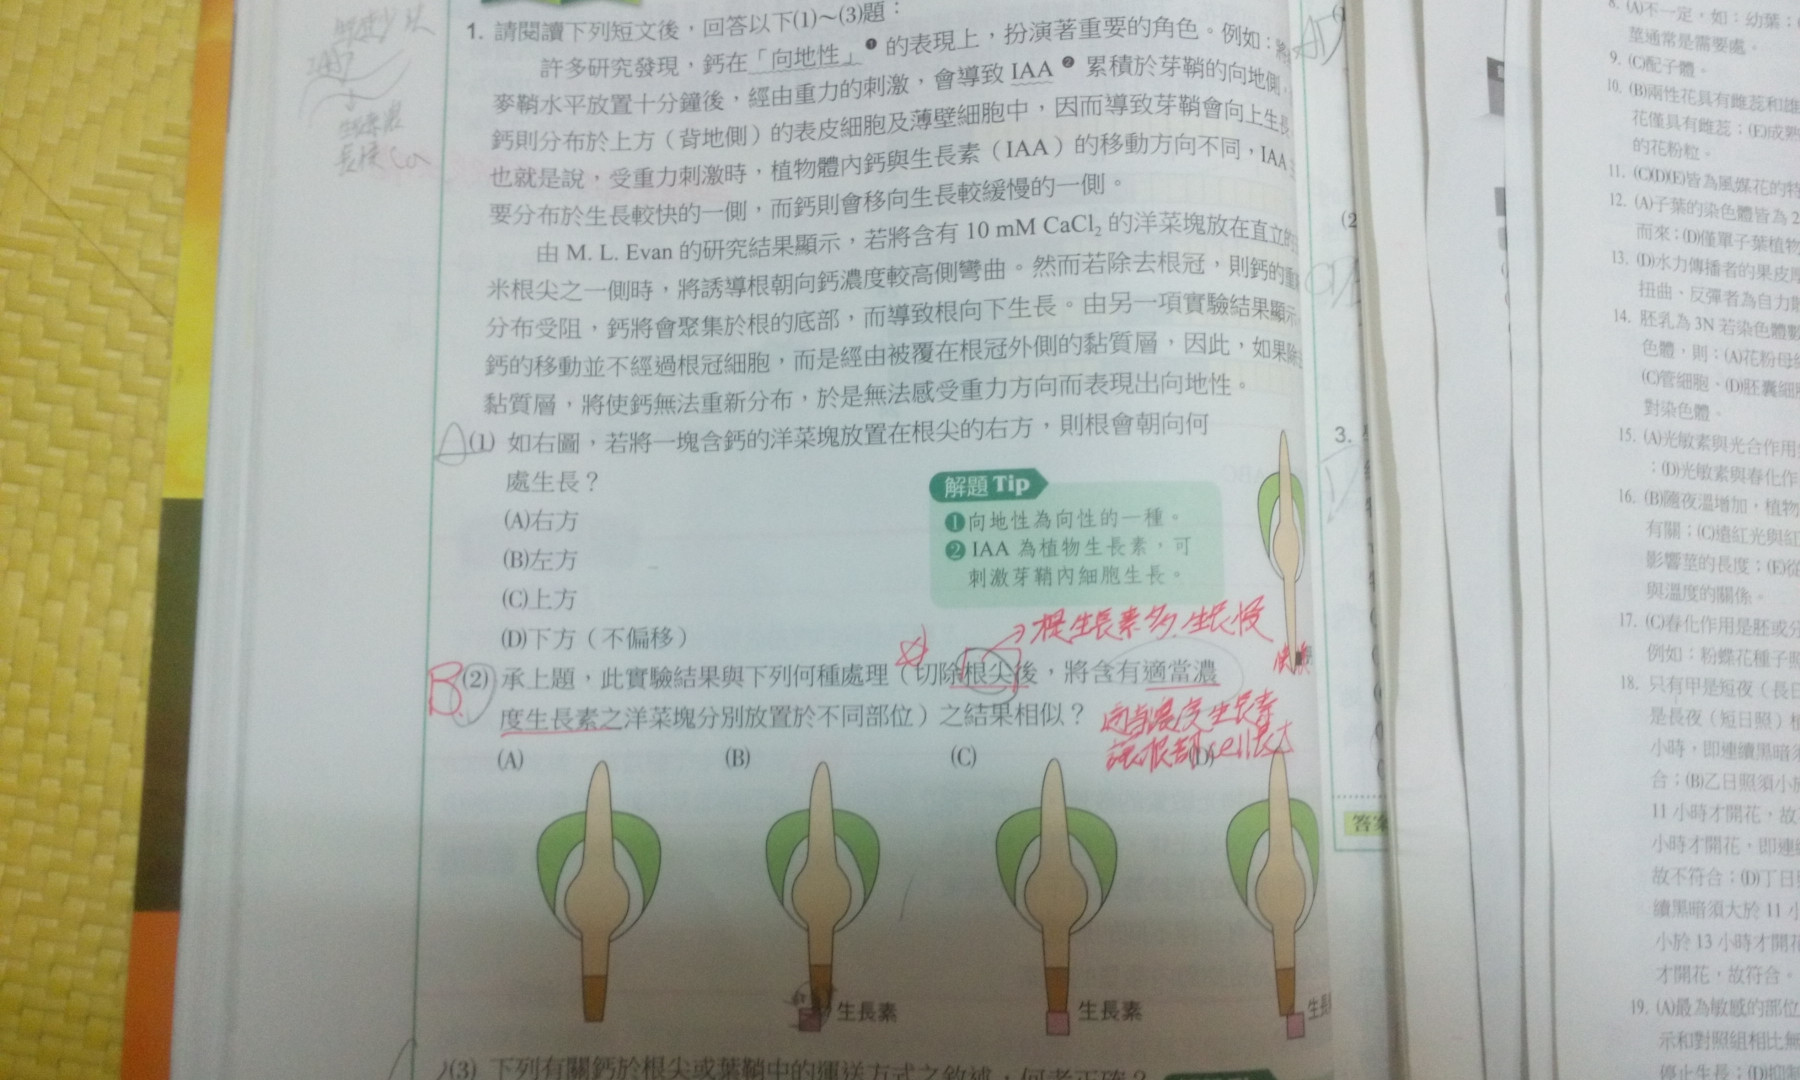 1. 請閱讀下列短文後，回答以下(1)～(3)題：
許多研究發現，鈣在「向地性」❶的表現上，扮演著重要的角色。例如：
麥鞘水平放置十分鐘後，經由重力的刺激，會導致 IAA ❷ 累積於芽鞘的向地側，
鈣則分布於上方（背地側）的表皮細胞及薄壁細胞中，因而導致芽鞘會向上生長
也就是說，受重力刺激時，植物體內鈣與生長素（IAA）的移動方向不同，IAA
要分布於生長較快的一側，而鈣則會移向生長較緩慢的一側。
由 M. L. Evan 的研究結果顯示，若將含有 10 mM CaCl₂ 的洋菜塊放在直立的
米根尖之一側時，將誘導根朝向鈣濃度較高側彎曲。然而若除去根冠，則鈣的重
分布受阻，鈣將會聚集於根的底部，而導致根向下生長。由另一項實驗結果顯示
鈣的移動並不經過根冠細胞，而是經由被覆在根冠外側的黏質層，因此，如果除
黏質層，將使鈣無法重新分布，於是無法感受重力方向而表現出向地性。
A (1) 如右圖，若將一塊含鈣的洋菜塊放置在根尖的右方，則根會朝向何
處生長？
(A)右方
(B)左方
(C)上方
(D)下方（不偏移）
解題 Tip
❶向地性為向性的一種。
❷ IAA 為植物生長素，可
刺激芽鞘內細胞生長。
根生長素多生長慢
B (2) 承上題，此實驗結果與下列何種處理（切除根尖後，將含有適當濃
度生長素之洋菜塊分別放置於不同部位）之結果相似？
(A) (B) (C) (D)
生長素
生長素
生長
(3) 下列有關鈣於根尖或葉鞘中的運送方式之敘述，何者正確？
(2
3.
答案
8. (A)不一定，如：幼葉：
莖通常是需要處。
9. (C)配子體。
10. (B)兩性花具有雌蕊和雄
花僅具有雌蕊；(E)成熟
的花粉粒。
11. (C)(D)(E)皆為風媒花的特
12. (A)子葉的染色體皆為 2
而來；(D)僅單子葉植物
13. (D)水力傳播者的果皮厚
扭曲、反彈者為自力
14. 胚乳為 3N 若染色體數
色體，則：(A)花粉母
(C)管細胞、(D)胚囊細
對染色體。
15. (A)光敏素與光合作用
；(D)光敏素與春化作
16. (B)隨夜溫增加，植物
有關；(C)遠紅光與紅
影響莖的長度；(E)從
與溫度的關係。
17. (C)春化作用是胚或分
例如：粉蝶花種子照
18. 只有甲是短夜（長日
是長夜（短日照）植
小時，即連續黑暗須
合；(B)乙日照須小於
11 小時才開花，故
小時才開花，即連續
故不符合；(D)丁日照
續黑暗須大於 11 小
小於 13 小時才開花
才開花，故符合。
19. (A)最為敏感的部位
示和對照組相比無
停止生長；(D)抑制